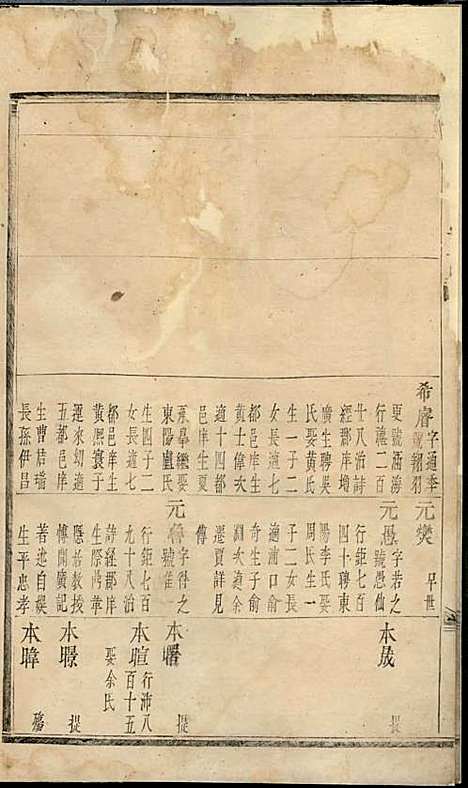 希睿
字通季
更號涵海
行濂二百
廿八治詩
經郡庠增
廣生聘吳
氏娶黃氏
生一子二
女長適七
都邑庠生
黃士偉次
適十四都
邑庠生夏
承學繼娶
東陽盧氏
生四子二
女長適七
都邑庠生
黃熙寰于
運泉幼適
五都邑庠
生曹
長孫伊昌
元燮
早世
元愚
字若之
號愚仙
行鉅七百
四十聘東
陽李氏娶
周氏生一
子二女長
適浦口俞
奇生子俞
淵次適余
遷賈詳見
傳
元魯
字得之
號隹
行鉅七百
九十八治
詩經郡庠
生際鴻
懸若教授
博聞廣記
著述自娛
生平忠孝
本晟
提
本曙
提
本暄
行沛八
百十五
娶余氏
本暻
提
本暐